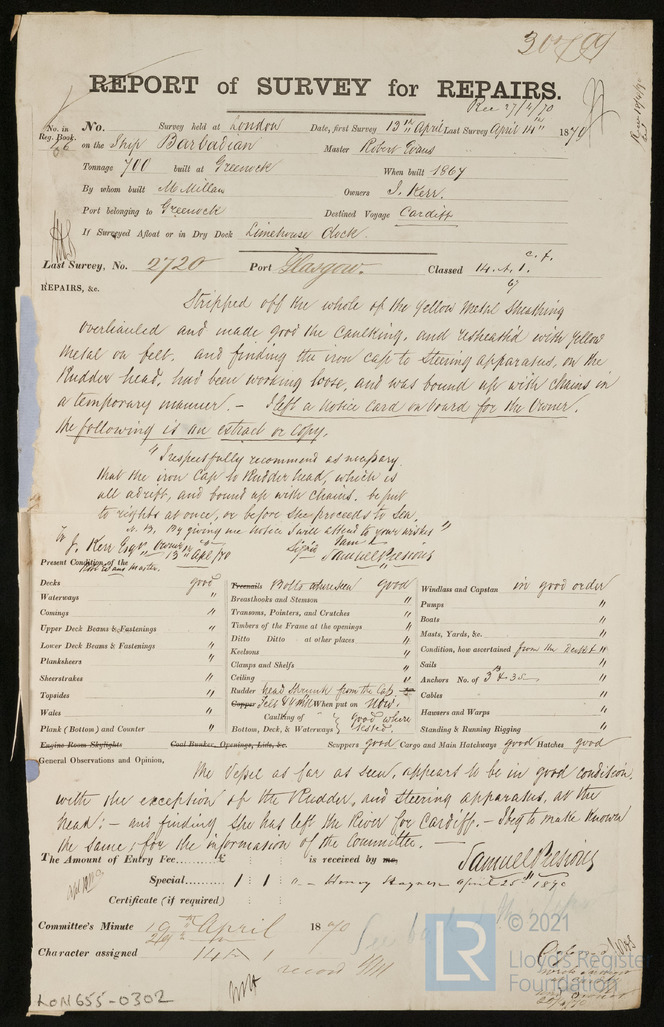 REPORT of SURVEY for REPAIRS.
Rec 27/4/70
No. in Reg. Book.
No. Survey held at London Date, first Survey 13th April Last Survey April 14th 1870
on the Ship Barbadian Master Robert Evans
Tonnage 700 built at Greenock When built 1867
By whom built McMillan Owners J. Kerr.
Port belonging to Greenock Destined Voyage Cardiff
If Surveyed Afloat or in Dry Dock Limehouse Dock.
Last Survey, No. 2720 Port Glasgow. Classed 14. A. 1. c.f.
67
REPAIRS, &c.
Stripped off the whole of the Yellow Metal Sheathing
overhauled and made good the Caulking, and resheath'd with Yellow
Metal on felt. and finding the iron cap to Steering apparatus, on the
Rudder head, had been working loose, and was bound up with chains in
a temporary manner. — I left a Notice Card on board for the Owner.
the following is an extract or Copy.
"I respectfully recommend as necessary
that the iron Cap to Rudder head, which is
all adrift, and bound up with chains. be put
to rights at once, or before she proceeds to Sea.
N. B. By giving me Notice I will attend to your wishes "
To J. Kerr Esqr. Owner
13th Apl /70
Signed Samuel Pretious
Robt Evans Master.
Present Condition of the
Decks good
Waterways "
Comings "
Upper Deck Beams & Fastenings "
Lower Deck Beams & Fastenings "
Planksheers "
Sheerstrakes "
Topsides "
Wales "
Plank (Bottom) and Counter "
Engine Room Skylights Coal Bunker, Openings, Lids, &c.
Treenails Bolts where seen good
Breasthooks and Stemson "
Transoms, Pointers, and Crutches "
Timbers of the Frame at the openings "
Ditto Ditto at other places "
Keelsons "
Clamps and Shelfs "
Ceiling "
Rudder head Shrunk from the Cap.
Copper Felt & YM When put on Now.
Caulking of Bottom, Deck, & Waterways } good where tested.
Windlass and Capstan in good order
Pumps "
Boats "
Masts, Yards, &c. "
Condition, how ascertained from the Deck "
Sails "
Anchors No. of
Cables "
Hawsers and Warps "
Standing & Running Rigging "
Scuppers good Cargo and Main Hatchways good Hatches good
General Observations and Opinion,
The Vessel as far as seen, appears to be in good condition,
with the exception of the Rudder, and Steering apparatus, at the
head: — and finding She has left the River for Cardiff. — I beg to make known
the same, for the information of the Committee. —
The Amount of Entry Fee......£ : : is received by me,
Samuel Pretious
Special...... 1 : 1 : " —
April 25th 1870
Certificate (if required)
Committee's Minute 19th April 1870
Character assigned 14 A 1
record
LON655-0302
© 2021
LR
Lloyd's Register
Foundation